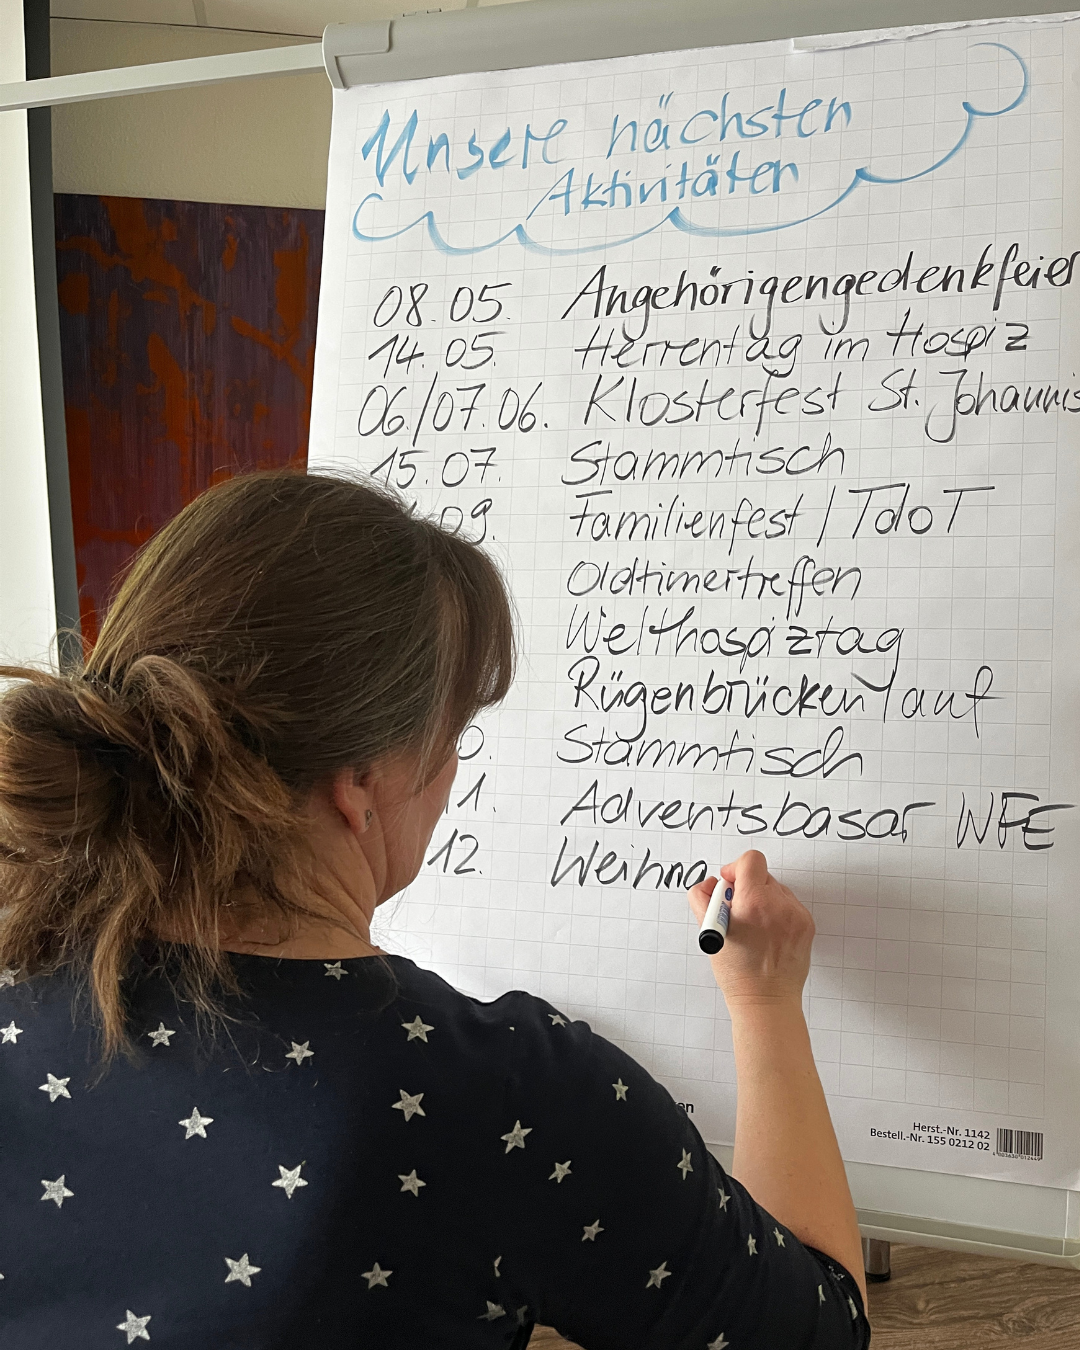 Unsere nächsten
Aktivitäten
08.05. Angehörigengedenkfeier
14.05. Herrentag im Hospiz
06./07.06. Klosterfest St. Johannis
15.07. Stammtisch
09. Familienfest / TdoT
Oldtimertreffen
Welthospiztag
Rügenbrückenlauf
0. Stammtisch
1. Adventsbasar WFE
12. Weihna
en
Herst.-Nr. 1142
Bestell.-Nr. 155 0212 02